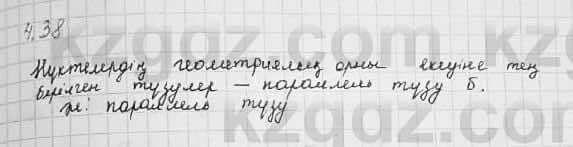 4.38
Нүктелердің геометриялық орны екеуіне тең
берілген түзулер — параллель түзу б.
ж: параллель түзу